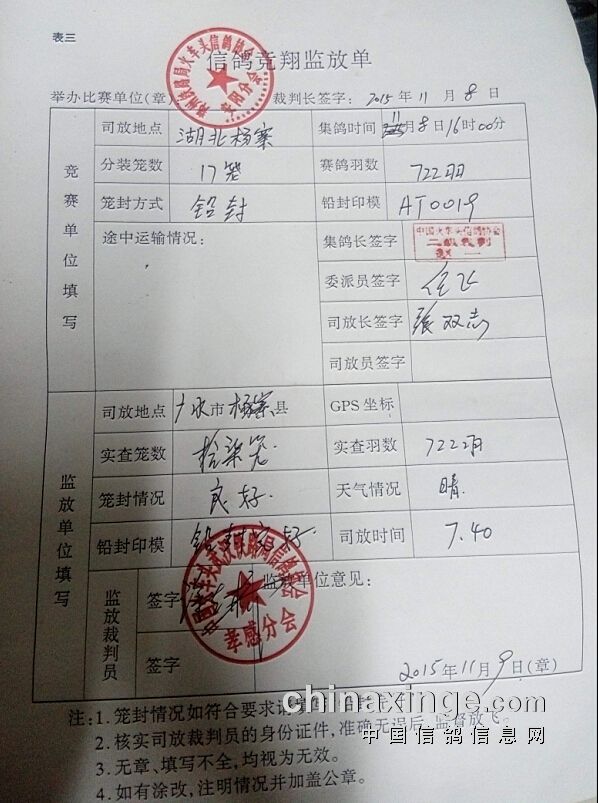 表三
信鸽竞翔监放单
举办比赛单位(章) 裁判长签字: 2015年11月8日
竞赛单位填写
司放地点 湖北杨寨 集鸽时间 11月8日16时00分
分装笼数 17笼 赛鸽羽数 722羽
笼封方式 铅封 铅封印模 AT0019
途中运输情况: 集鸽长签字 中国火车头信鸽协会
二级裁判
委派员签字 任飞
司放长签字 张双志
司放员签字
监放单位填写
司放地点 广水市杨寨县 GPS坐标
实查笼数 拾柒笼 实查羽数 722羽
笼封情况 良好 天气情况 晴
铅封印模 铅封良好 司放时间 7.40
监放裁判员 签字 监放单位意见:
签字
孝感分会
2015年11月9日(章)
注:1.笼封情况如符合要求请
2.核实司放裁判员的身份证件,准确无误后,监督放飞。
3.无章、填写不全,均视为无效。
4.如有涂改,注明情况并加盖公章。
chinaxinge.com
中国信鸽信息网